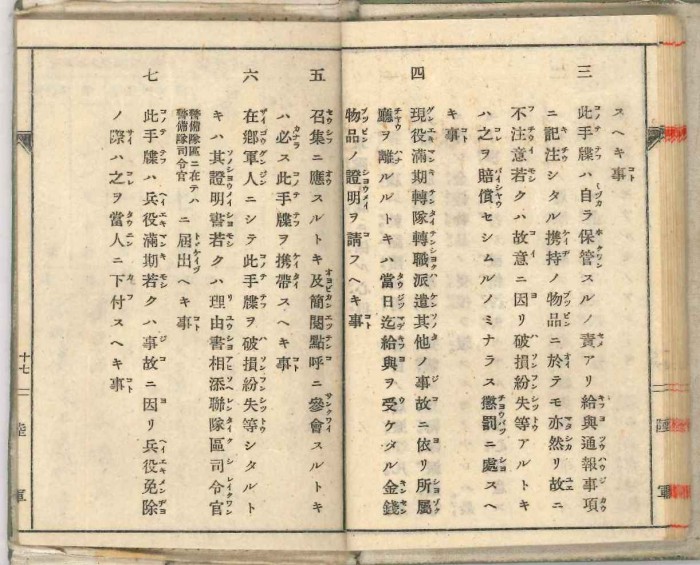 スヘキ事
三 此手牒ハ自ラ保管スルノ責アリ給與通報事項
ニ記注シタル携持ノ物品ニ於テモ亦然リ故ニ
不注意若クハ故意ニ因リ破損紛失等アルトキ
ハ之ヲ賠償セシムルノミナラス懲罰ニ處スヘ
キ事
四 現役滿期轉隊轉職派遣其他ノ事故ニ依リ所屬
廳ヲ離ルルトキハ當日迄給與ヲ受ケタル金錢
物品ノ證明ヲ請スヘキ事
五 召集ニ應スルトキ及簡閲點呼ニ參會スルトキ
ハ必ス此手牒ヲ携帶スヘキ事
六 在鄕軍人ニシテ此手牒ヲ破損紛失等シタルト
キハ其證明書若クハ理由書相添聯隊區司令官
警備隊區ニ在テハ
警備隊司令官 ニ屆出ヘキ事
七 此手牒ハ兵役滿期若クハ事故ニ因リ兵役免除
ノ際ハ之ヲ當人ニ下付スヘキ事
十七
陸軍
陸軍